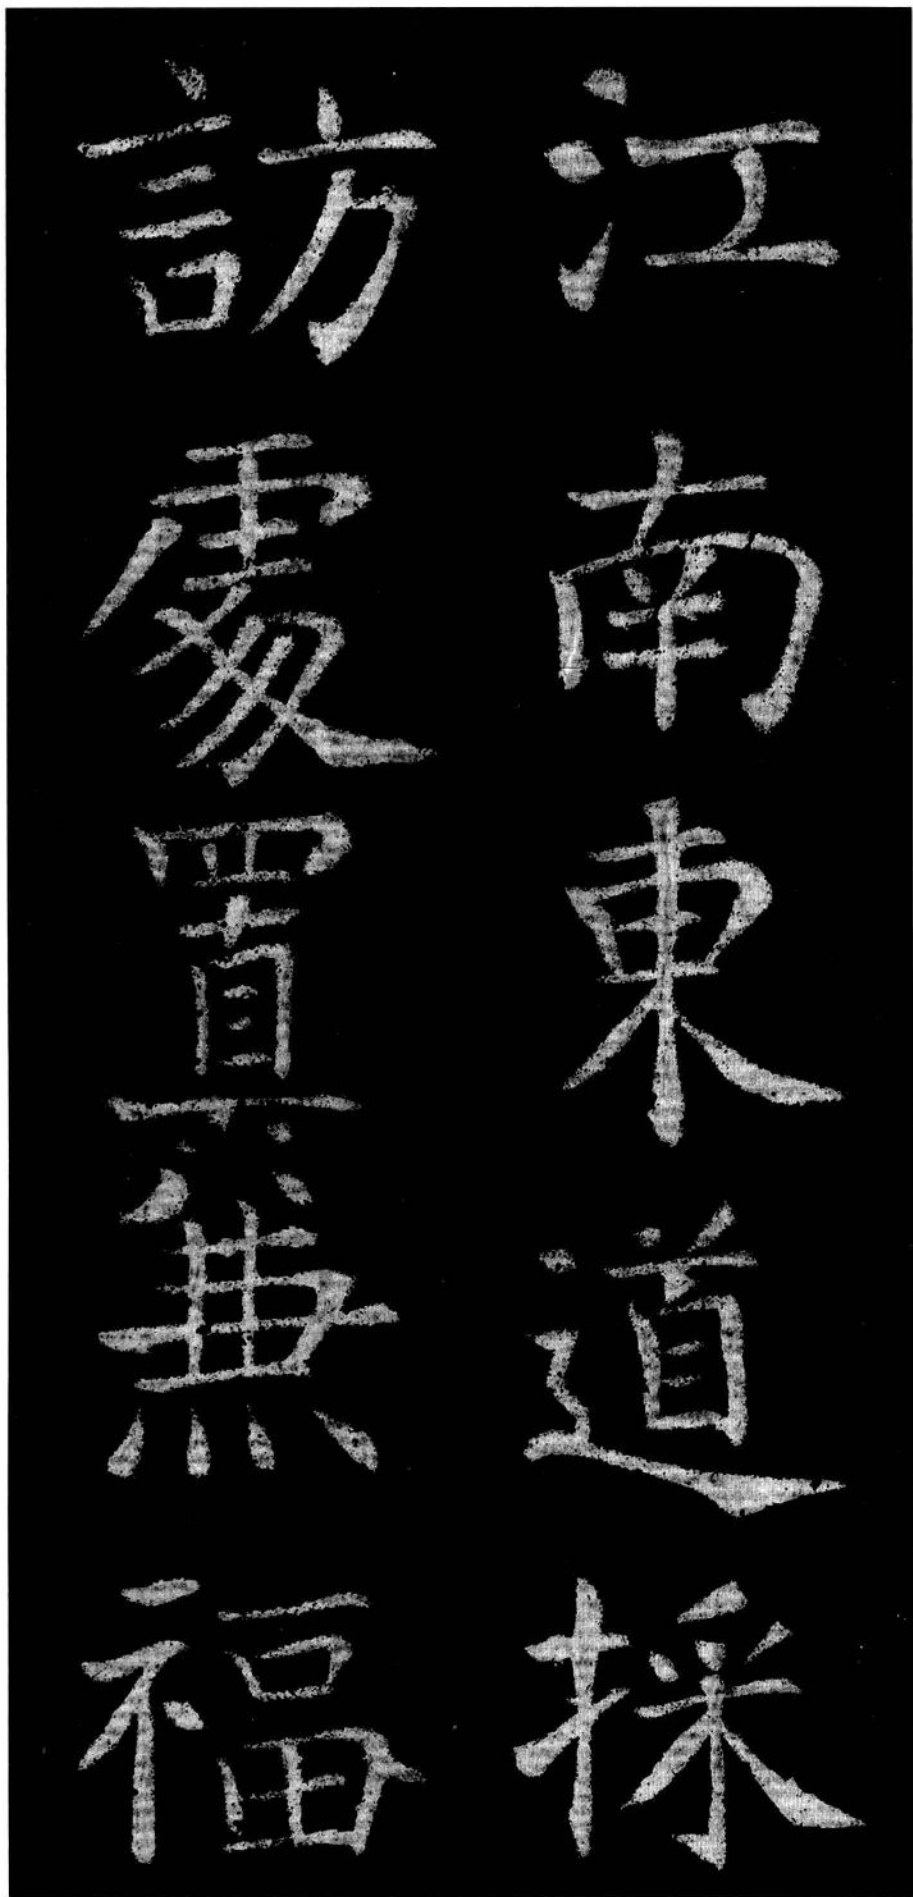 江南東道採
訪處置兼福